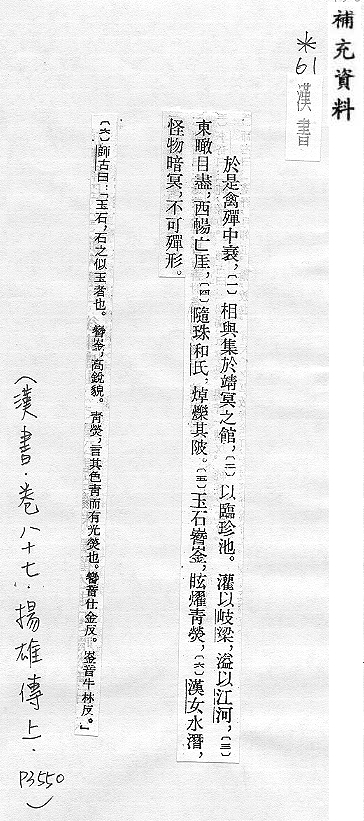 補充資料
*61 漢書
於是禽殫中衰,〔一〕相與集於靖冥之館,〔二〕以臨珍池。灌以岐梁,溢以江河,〔三〕
東瞰目盡,西暢亡厓,〔四〕隨珠和氏,焯爍其陂。〔五〕玉石嶜崟,眩燿青熒,〔六〕漢女水潛,
怪物暗冥,不可殫形。
〔六〕師古曰:「玉石,石之似玉者也。嶜崟,高銳貌。青熒,言其色青而有光熒也。嶜音仕金反。崟音牛林反。」
(漢書·卷八十七·揚雄傳上·P3550)